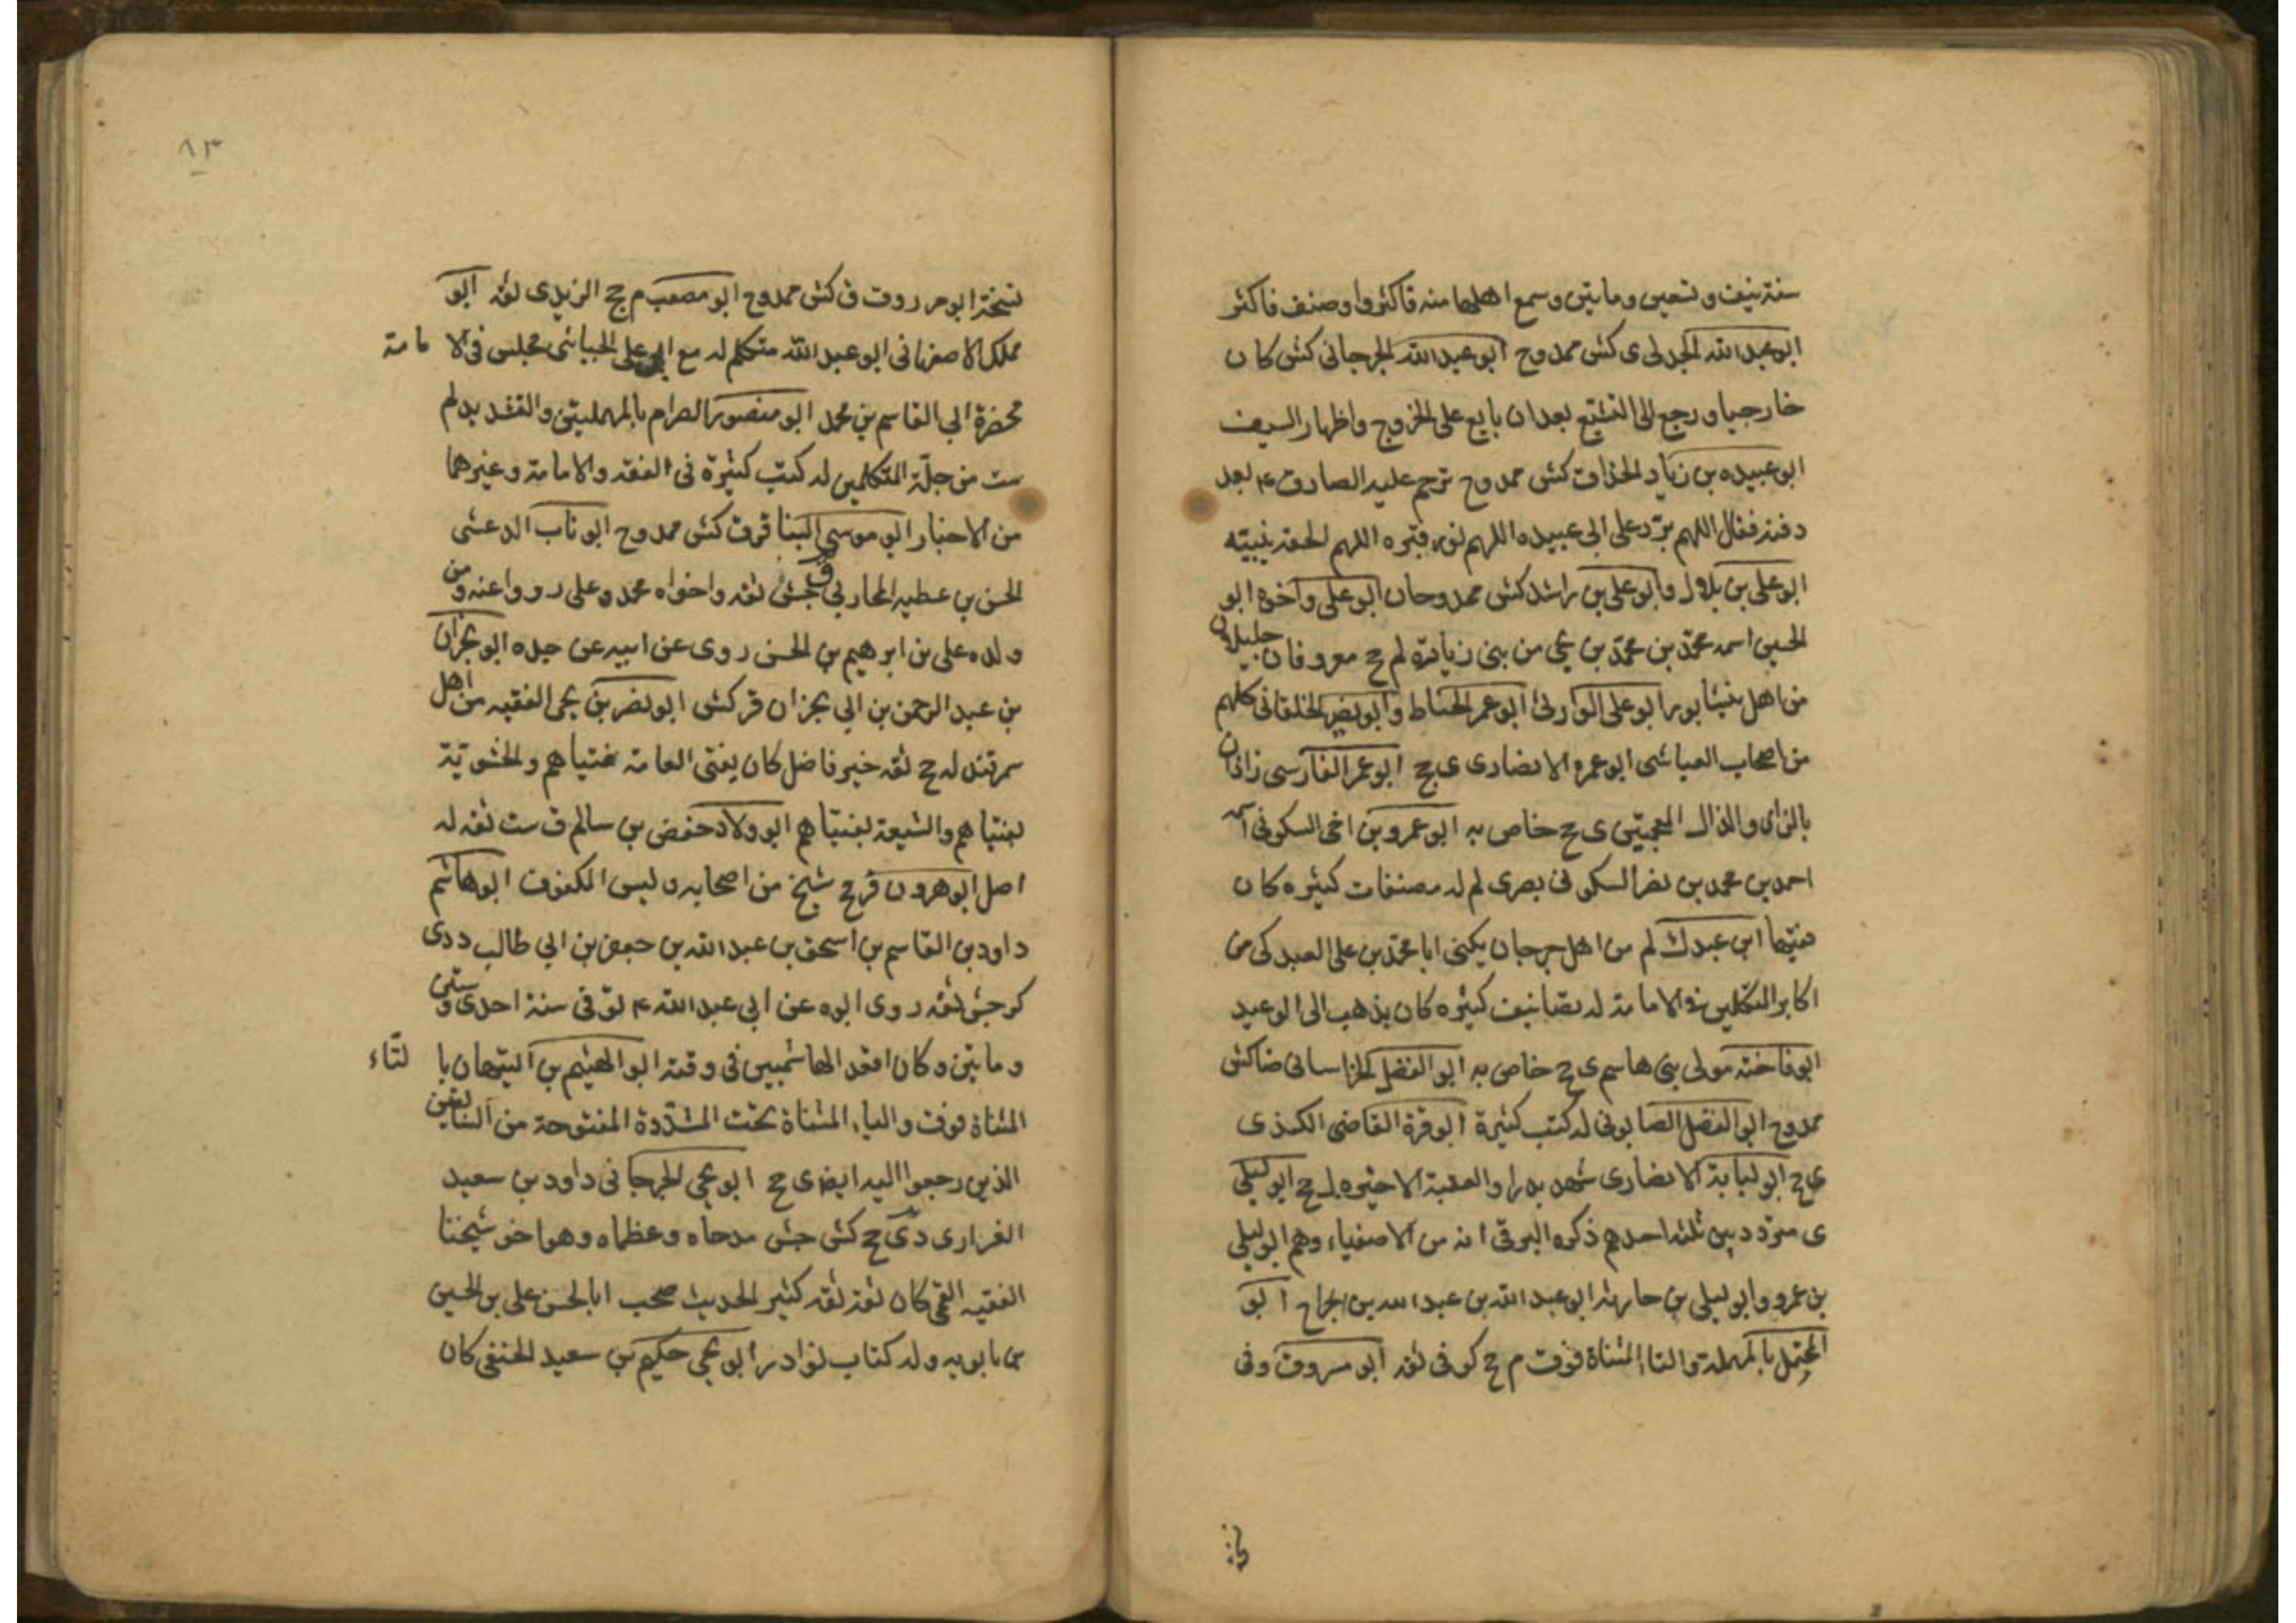 سنة نيف و تسعين و مايتين و سمع اهلها منه فاكثروا وصنف فاكثر
ابو عبد الله الجدلى ى كش ممدوح ابو عبد الله الجرجانى كش كان
خارجيا و رجع الى التشيع بعد ان بايع على الخروج واظهار السيف
ابو عبيده بن زياد الحذا ق كش ممدوح ترحم عليه الصادق ع بعد
دفنه فقال اللهم برّد على ابى عبيده اللهم نور قبره اللهم الحقه بنبيّه
ابو على بن بلال وابو على بن راشد كش ممدوحان ابو على واخوه ابو
الحسين اسمه محمّد بن محمّد بن يحيى من بنى زيارة لم جخ معروفان جليلان
من اهل نيشابور ابو على الوارثى ابو عمر الخياط و ابو نصر الخلقانى كلهم
من اصحاب العياشى ابو عمره الانصارى ى جخ ابو عمر الفارسى زاذان
بالزاى والذال المعجمتين ى جخ خاص به ابو عمرو بن اخى السكونى اسمه
احمد بن محمد بن نصر السكونى بصرى لم له مصنفات كثيره كان
فقيها ابن عبدك لم من اهل جرجان يكنى ابا محمّد بن على العبدكى من
اكابر المتكلمين فى الامامة له تصانيف كثيره كان يذهب الى الوعيد
ابو فاخته مولى بنى هاشم ى جخ خاص به ابو الفضل الخراسانى ضا كش
ممدوح ابو الفضل الصابونى له كتب كثيرة ابو قرة القاضى الكندى
ى جخ ابو لبابة الانصارى شهد بدرا والعقبة الاخيره ل جخ ابو ليلى
ى متردد بين ثلثه احدهم ذكره البرقى انه من الاصفياء وهم ابو ليلى
بن عمرو وابو ليلى بن حارثه ابو عبد الله بن عبد الله بن الجراح ابو
المحتمل بالمهملة والتاء المثناة فوق م جخ كوفى ثقه ابو مسروق وفى
في
٨٣
نسخة ابو مرروق ق كش ممدوح ابو مصعب م جخ الزيدى ثقه ابو
مملك الاصفهانى ابو عبد الله متكلم له مع ابى على الجبائى مجلس فى الامامة
محضرة ابى القاسم بن محمد ابو منصور الصرام بالمهملتين والتشديد لم
ست من جلّة المتكلمين له كتب كثيرة فى الفقه والامامة وغيرهما
من الاخبار ابو موسى البنا قر ق كش ممدوح ابو ناب الدغشى
الحسن بن عطيه المحاربى ق جش ثقه واخواه محمد وعلى رووا عنه ومن
ولده على بن ابرهيم بن الحسن روى عن ابيه عن جده ابو بحران
بن عبد الرحمن بن ابى بحران قر كش ابو نصر بن يحيى الفقيه من اهل
سمرقند له جخ ثقه خير فاضل كان يفتى العامة بفتياهم والحشويّة
بفتياهم والشيعة بفتياهم ابو ولاد حفص بن سالم ق ست ثقه له
اصل ابو هرون قر جخ شيخ من اصحابه وليس المكفوف ابو هاشم
داود بن القاسم بن اسحق بن عبد الله بن جعفر بن ابى طالب د دى
كر جش ثقه روى ابوه عن ابى عبد الله ع توفى سنة احدى وستين
ومايتين وكان اقعد الهاشميين فى وقته ابو الهيثم بن التيهان بالتّاء
المثناة فوق والياء المثناة تحت المشدّدة المفتوحة من السابقين
الذين رجعوا اليه ايضا ى جخ ابو يحيى الجرجانى داود بن سعيد
الفزارى دى جخ كش جش مدحاه وعظماه وهو اخو شيخنا
الفقيه القمى كان ثقة ثقه كثير الحديث صحب ابا الحسن على بن الحسين
بن بابويه وله كتاب نوادر ابو يحيى حكيم بن سعيد الحنفى كان